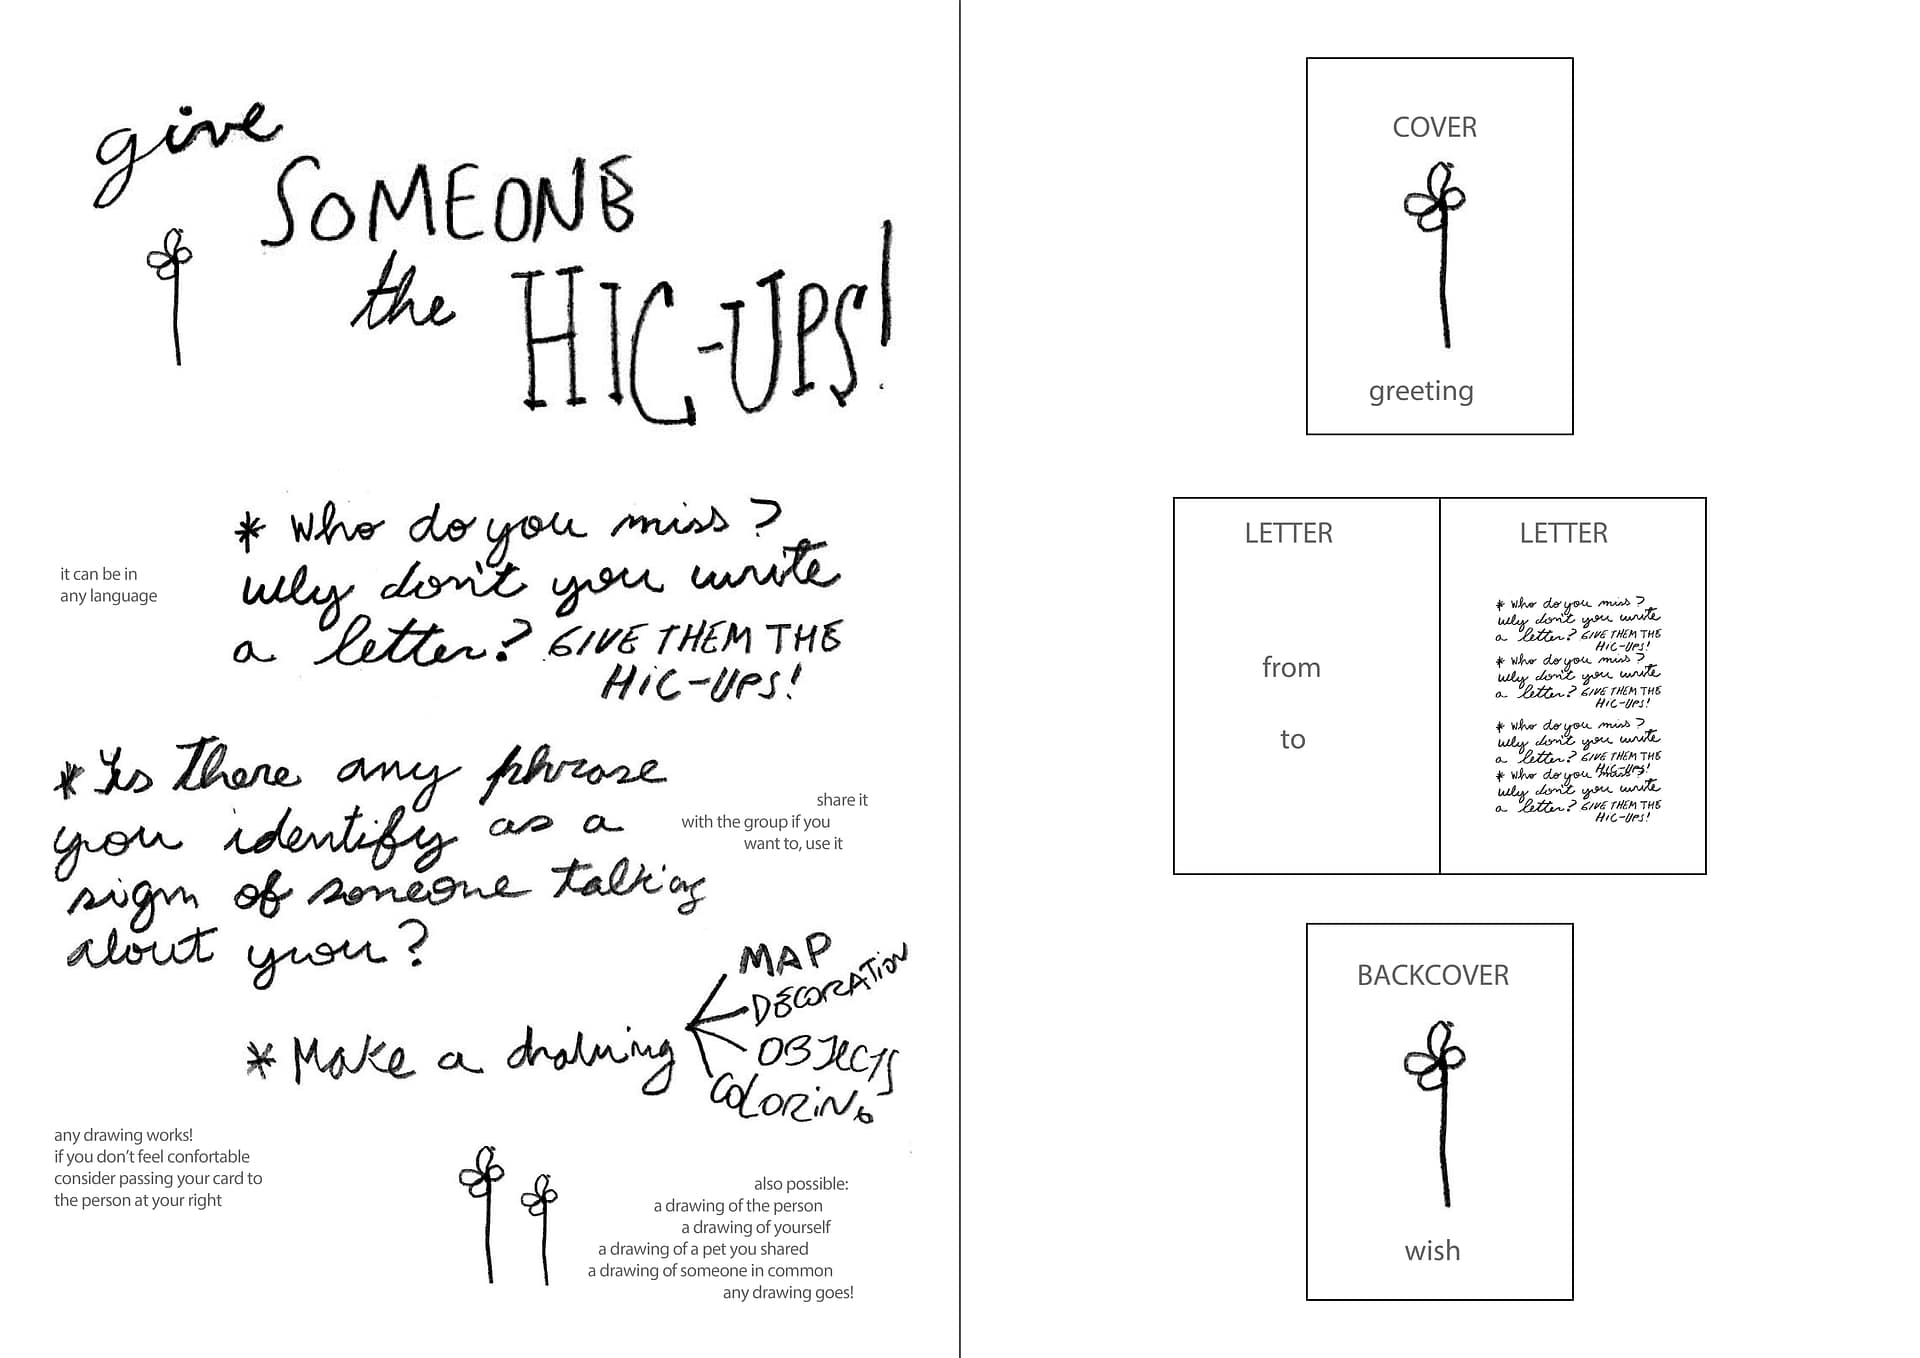 give
SOMEONE
the HIC-UPS!
* Who do you miss?
why don't you write
a letter? GIVE THEM THE
HIC-UPS!
it can be in
any language
* Is There any phrase
you identify as a
sign of someone talking
about you?
share it
with the group if you
want to, use it
* Make a drawing
MAP
DECORATION
OBJECTS
COLORING
any drawing works!
if you don't feel confortable
consider passing your card to
the person at your right
also possible:
a drawing of the person
a drawing of yourself
a drawing of a pet you shared
a drawing of someone in common
any drawing goes!
COVER
greeting
LETTER
from
to
LETTER
* Who do you miss?
why don't you write
a letter? GIVE THEM THE
HIC-UPS!
* Who do you miss?
why don't you write
a letter? GIVE THEM THE
HIC-UPS!
* Who do you miss?
why don't you write
a letter? GIVE THEM THE
HIC-UPS!
* Who do you miss?
why don't you write
a letter? GIVE THEM THE
HIC-UPS!
BACKCOVER
wish